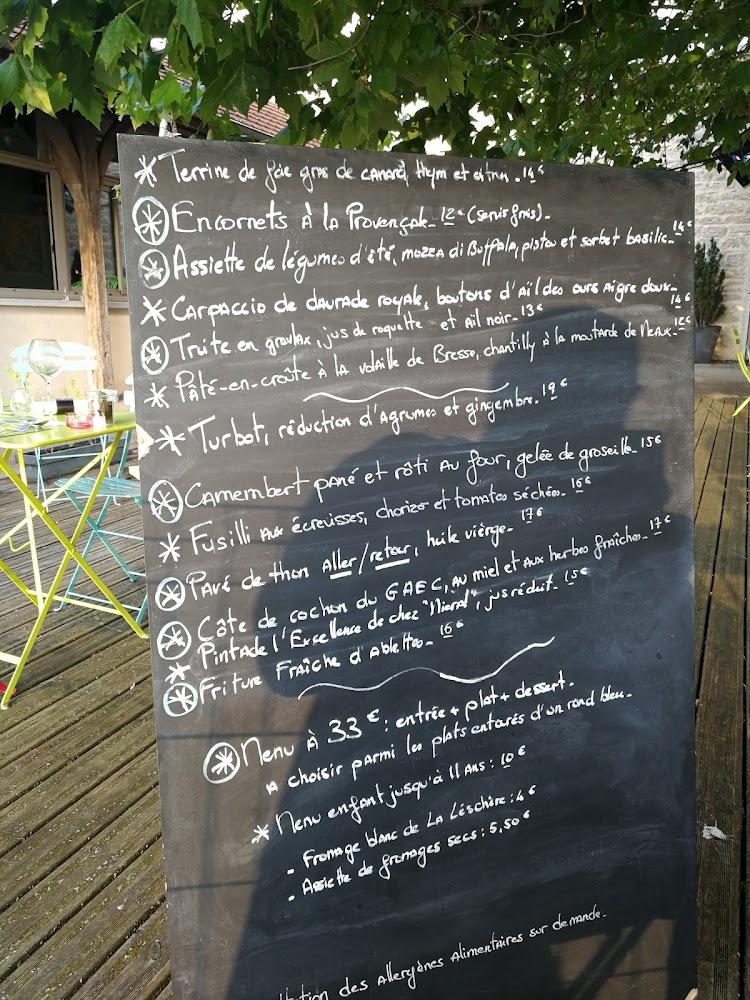 * Terrine de foie gras de canard, thym et citron - 14€
* Encornets à la Provençale - 12€ (servis froids) -
* Assiette de légumes d'été, mozza di Buffala, pistou et sorbet basilic - 14€
* Carpaccio de daurade royale, boutons d'ail des ours aigre doux - 14€
* Truite en gravlax, jus de roquette et ail noir - 13€
* Pâté-en-croûte à la volaille de Bresse, chantilly à la moutarde de Meaux - 12€
* Turbot, réduction d'agrumes et gingembre - 19€
* Camembert pané et rôti au four, gelée de groseille - 15€
* Fusilli aux écrevisses, chorizo et tomates séchées - 16€
* Pavé de thon aller/retour, huile vierge - 17€
* Côte de cochon du GAEC, au miel et aux herbes fraîches - 17€
* Pintade l'Excellence de chez "Miéral", jus réduit - 15€
* Friture fraîche d'ablettes - 16€
* Menu à 33€ : entrée + plat + dessert -
à choisir parmi les plats entourés d'un rond bleu -
* Menu enfant jusqu'à 11 ans : 10€
- Fromage blanc de La Léschère : 4€
- Assiette de fromages secs : 5,50€
des allergènes alimentaires sur demande -